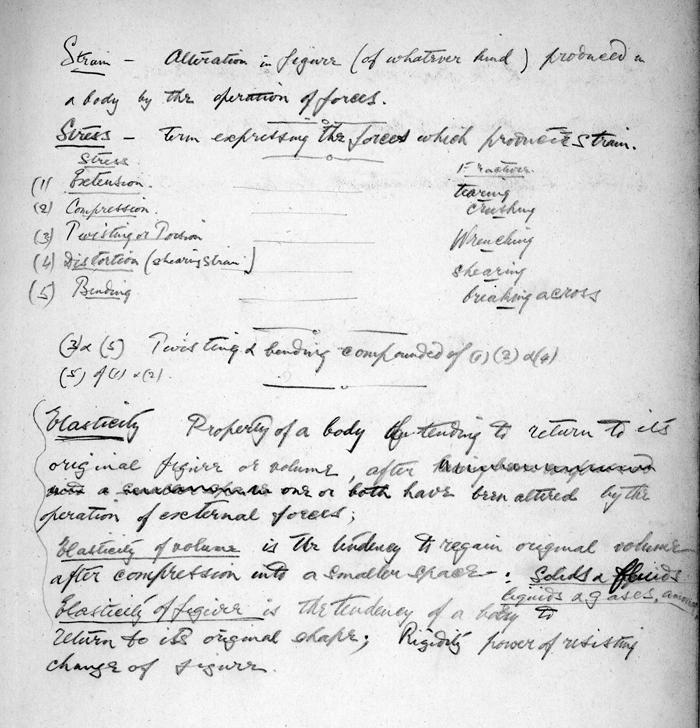 Strain - Alteration in figure (of whatever kind) produced in
a body by the operation of forces.
Stress - term expressing the forces which produces strain.
Stress Fracture.
(1) Extension. tearing
(2) Compression. crushing
(3) Twisting or Torsion Wrenching
(4) Distortion (shearing strain) shearing
(5) Bending breaking across
(3) & (5) Twisting & bending compounded of (1) (2) & (4)
(5) of (1) & (2)
Elasticity Property of a body tending to return to its
original figure or volume, after
a one or both have been altered by the
operation of external forces;
Elasticity of volume is the tendency to regain original volume
after compression into a smaller space : Solids & fluids
liquids & gases,
Elasticity of figure is the tendency of a body to
return to its original shape; Rigidity power of resisting
change of figure.